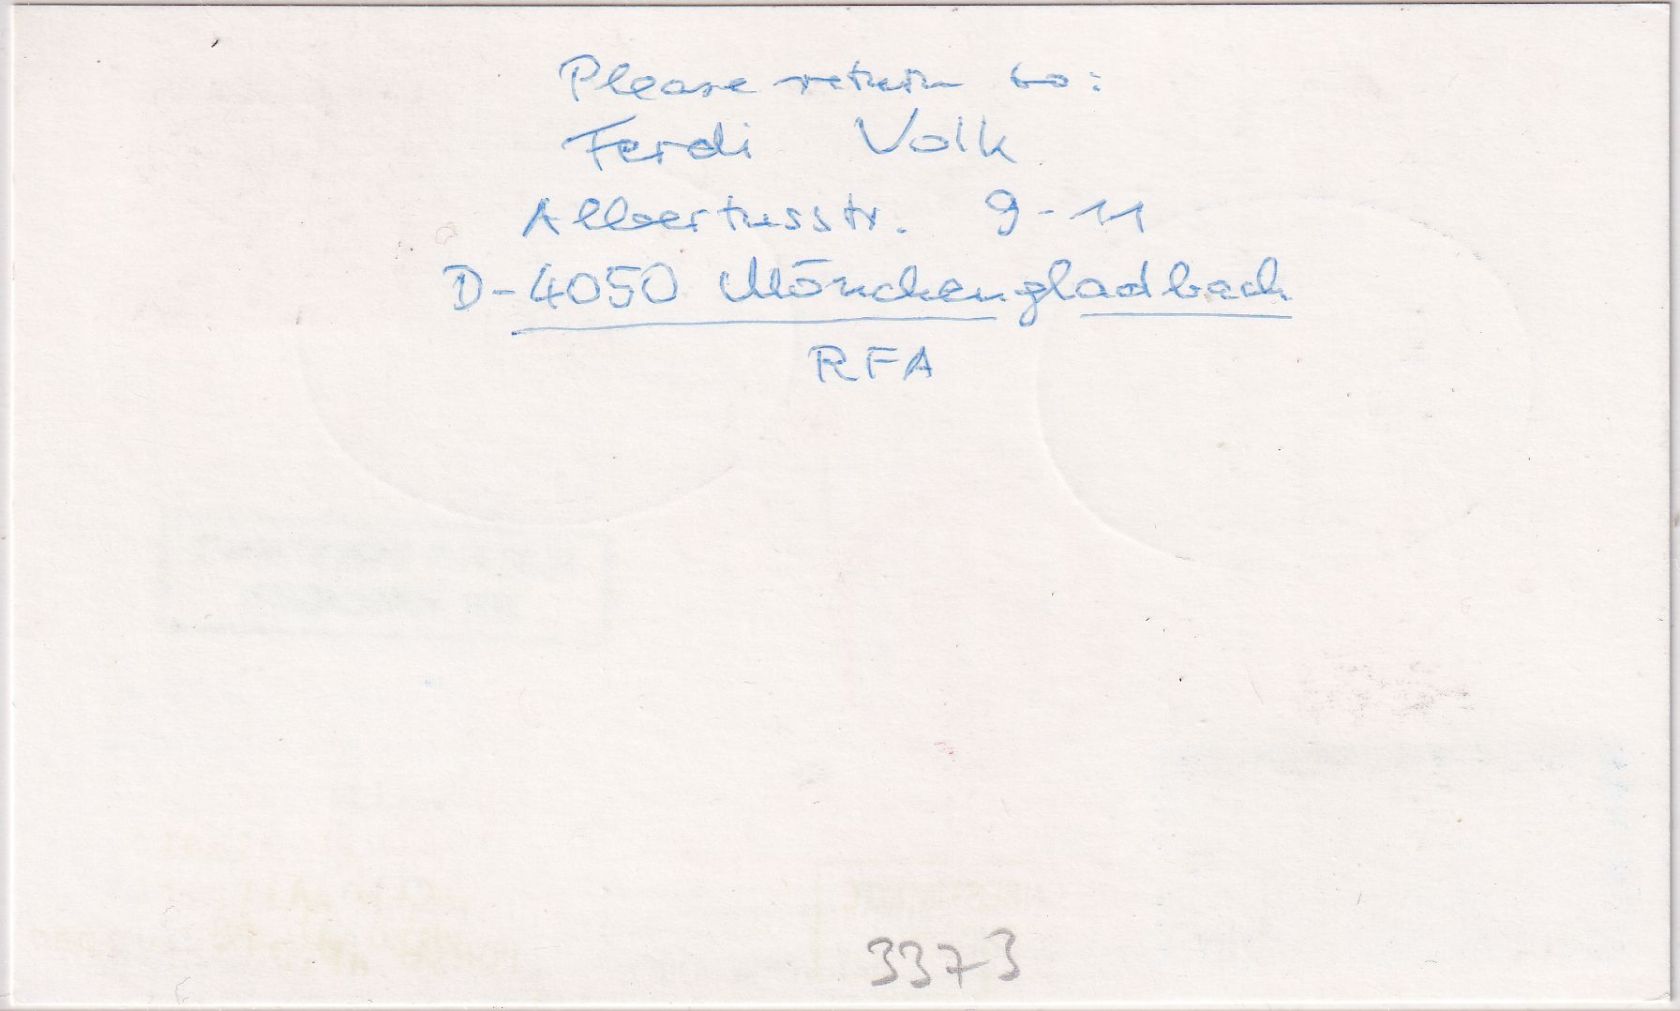 Please return to:
Ferdi Volk
Albertusstr. 9-11
D-4050 Mönchengladbach
RFA
3373